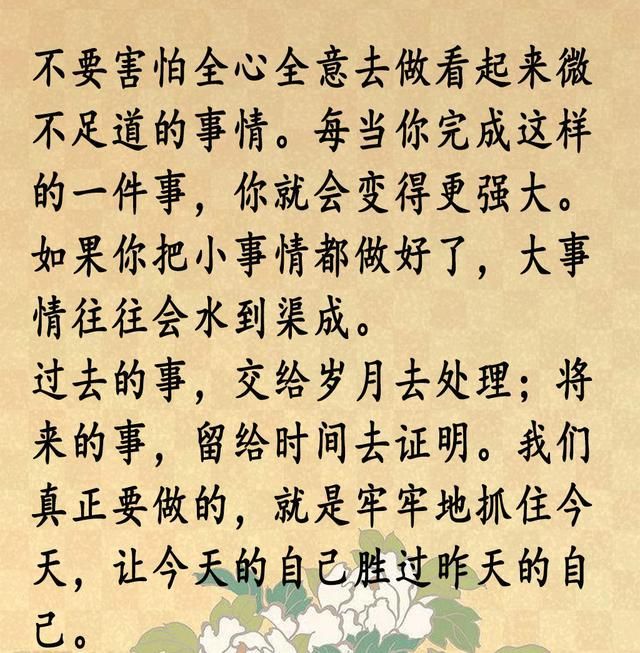 不要害怕全心全意去做看起来微
不足道的事情。每当你完成这样
的一件事，你就会变得更强大。
如果你把小事情都做好了，大事
情往往会水到渠成。
过去的事，交给岁月去处理；将
来的事，留给时间去证明。我们
真正要做的，就是牢牢地抓住今
天，让今天的自己胜过昨天的自
己。